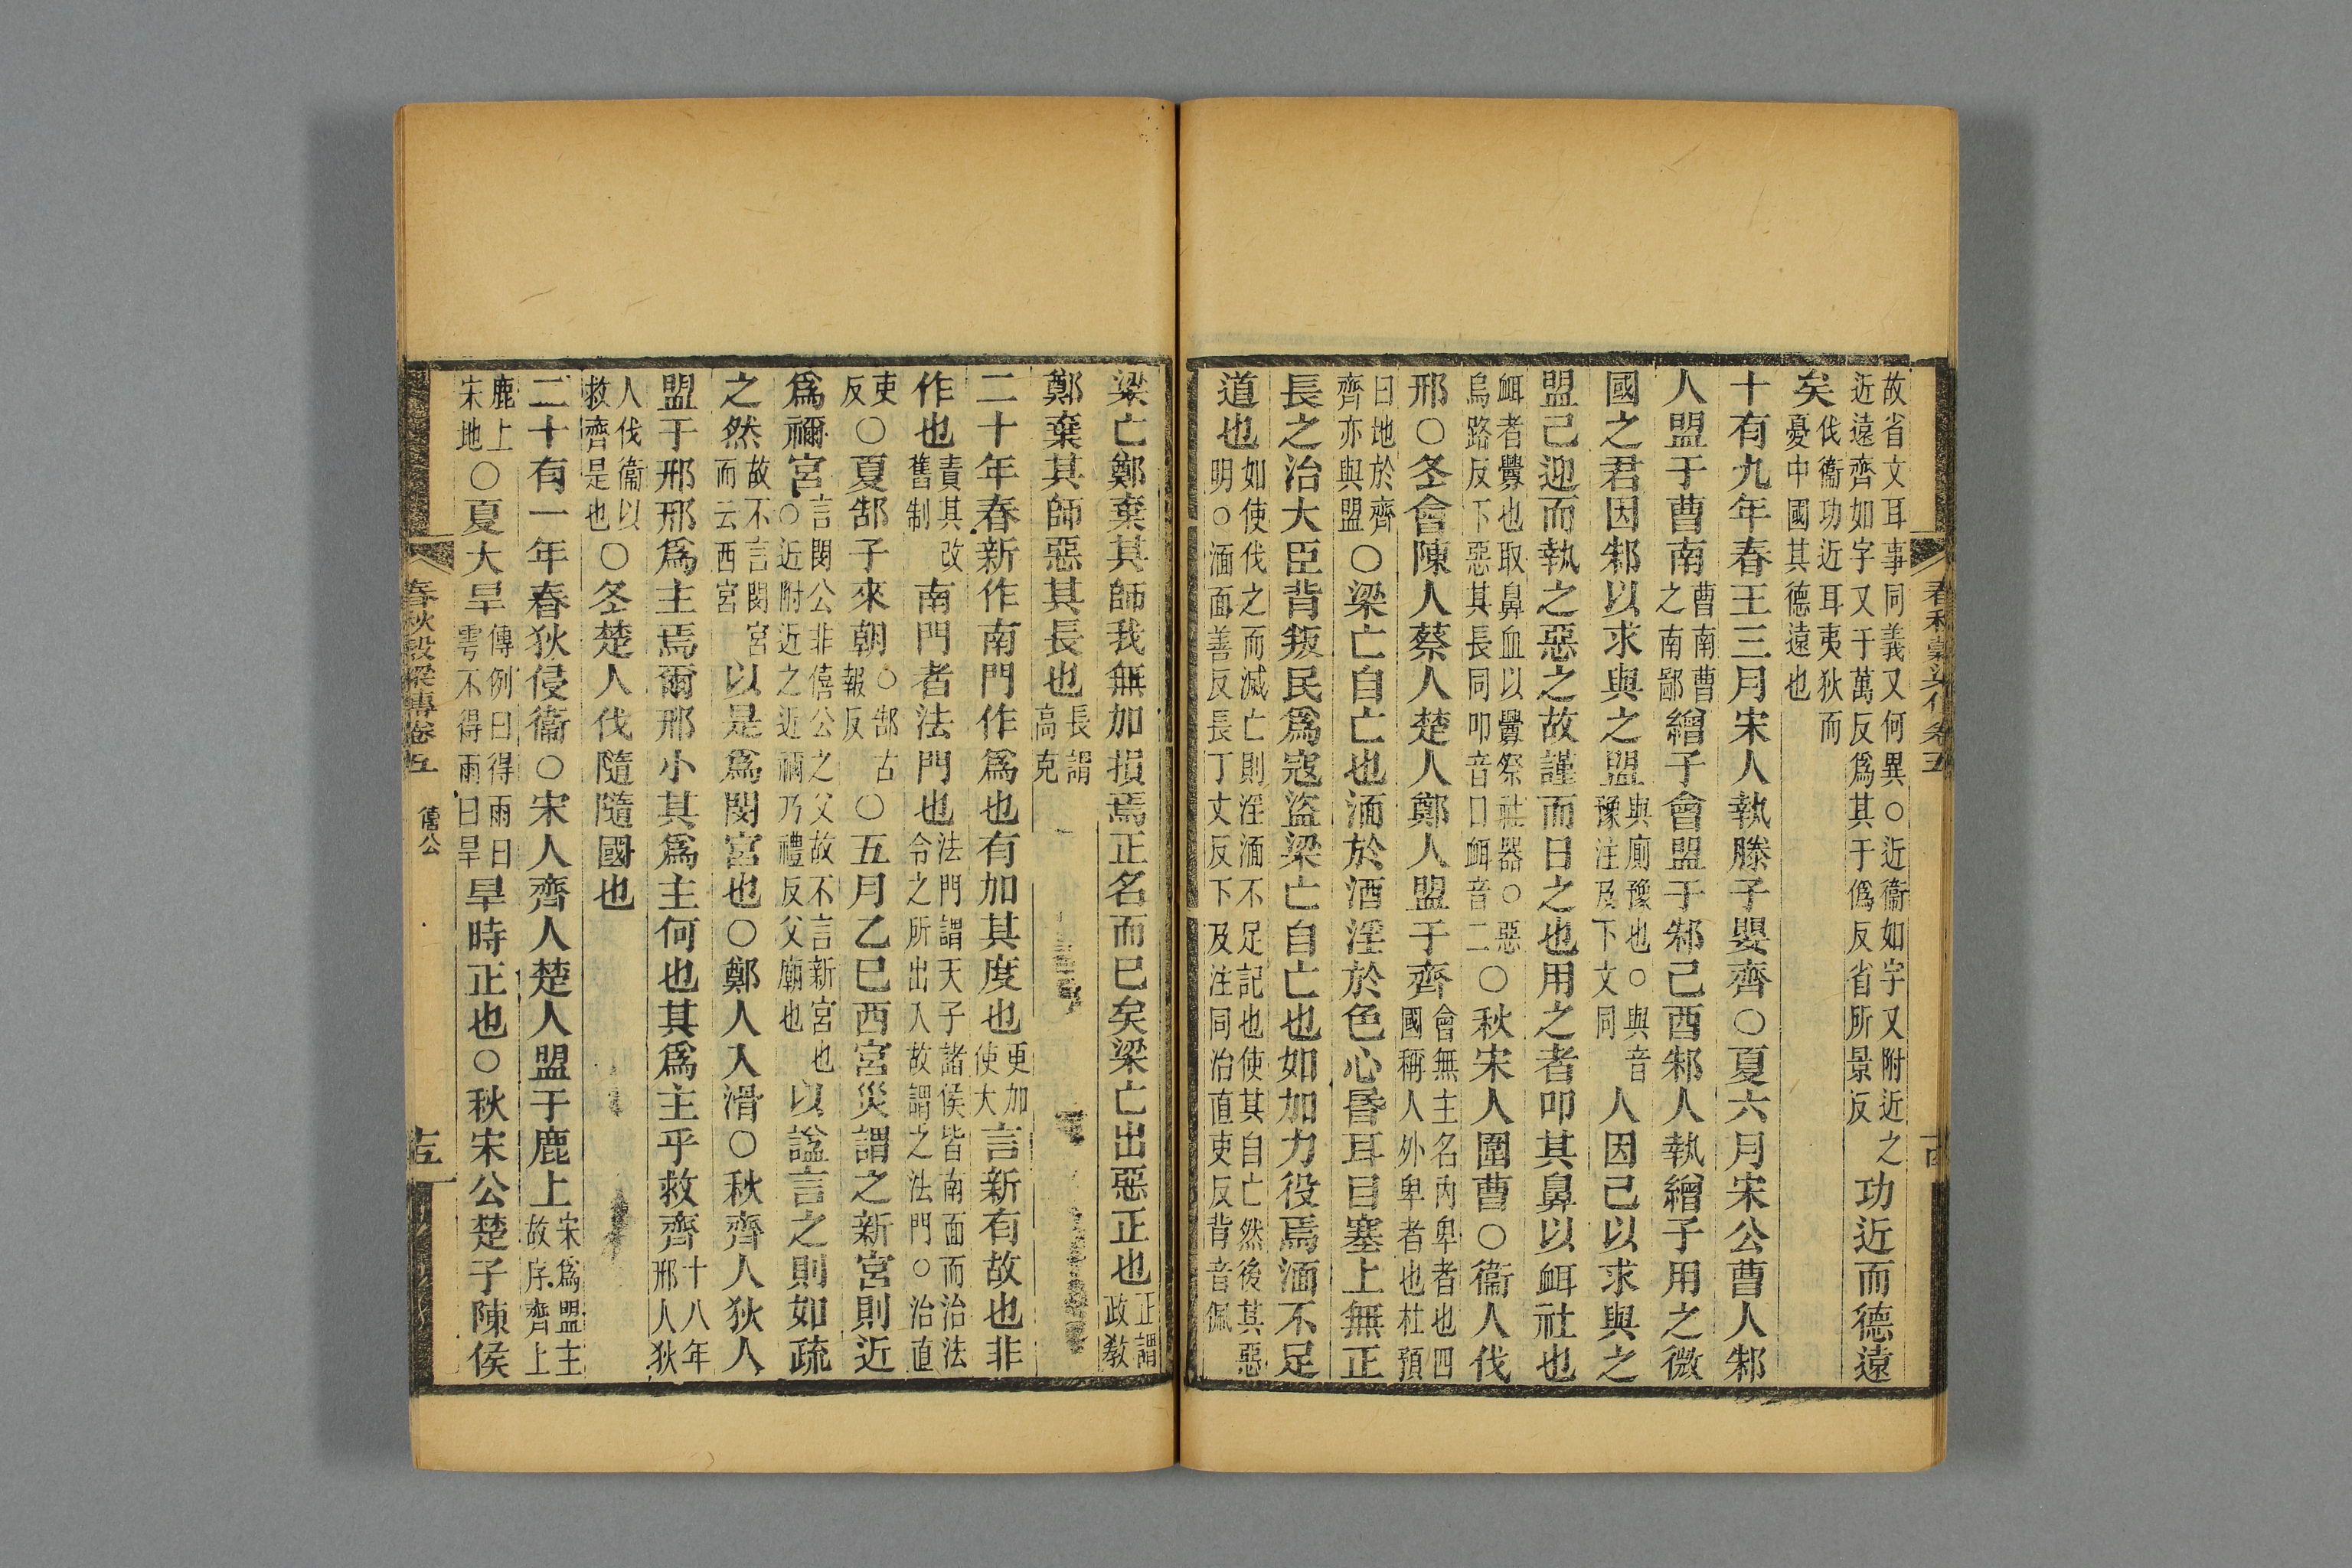 故省文耳事同義又何異○近衞如字又附近之
近遠齊如字又于萬反爲其于僞反省所景反
功近而德遠
矣
伐衞功近耳夷狄而
憂中國其德遠也
十有九年春王三月宋人執滕子嬰齊○夏六月宋公曹人邾
人盟于曹南
曹南曹
之南鄙
繒子會盟于邾己酉邾人執繒子用之微
國之君因邾以求與之盟
與廁豫也○與音
豫注及下文同
人因己以求與之
盟己迎而執之惡之故謹而日之也用之者叩其鼻以衈社也
衈者釁也取鼻血以釁祭社器○惡
烏路反下惡其長同叩音口衈音二
○秋宋人圍曹○衞人伐
邢○冬會陳人蔡人楚人鄭人盟于齊
會無主名內卑者也四
國稱人外卑者也杜預
曰地於齊
齊亦與盟
○梁亡自亡也湎於酒淫於色心昬耳目塞上無正
長之治大臣背叛民爲寇盜梁亡自亡也如加力役焉湎不足
道也
如使伐之而滅亡則淫湎不足記也使其自亡然後其惡
明○湎面善反長丁丈反下及注同治直吏反背音佩
春秋穀梁傳卷五
梁亡鄭棄其師我無加損焉正名而已矣梁亡出惡正也
正謂
政教
鄭棄其師惡其長也
長謂
高克
二十年春新作南門作爲也有加其度也
更加
使大
言新有故也非
作也
責其改
舊制
南門者法門也
法門謂天子諸侯皆南面而治法
令之所出入故謂之法門○治直
吏
反
○夏郜子來朝
○郜古
報反
○五月乙巳西宮災謂之新宮則近
爲禰宮
言閔公非僖公之父故不言新宮也
○近附近之近禰乃禮反父廟也
以諡言之則如疏
之然
故不言閔宮
而云西宮
以是爲閔宮也○鄭人入滑○秋齊人狄人
盟于邢邢爲主焉爾邢小其爲主何也其爲主乎救齊
十八年
邢人狄
人伐衞以
救齊是也
○冬楚人伐隨隨國也
二十有一年春狄侵衞○宋人齊人楚人盟于鹿上
宋爲盟主
故序齊上
鹿上
宋地
○夏大旱
傳例曰得雨曰
雩不得雨曰旱
旱時正也○秋宋公楚子陳侯
春秋穀梁傳卷五
僖公